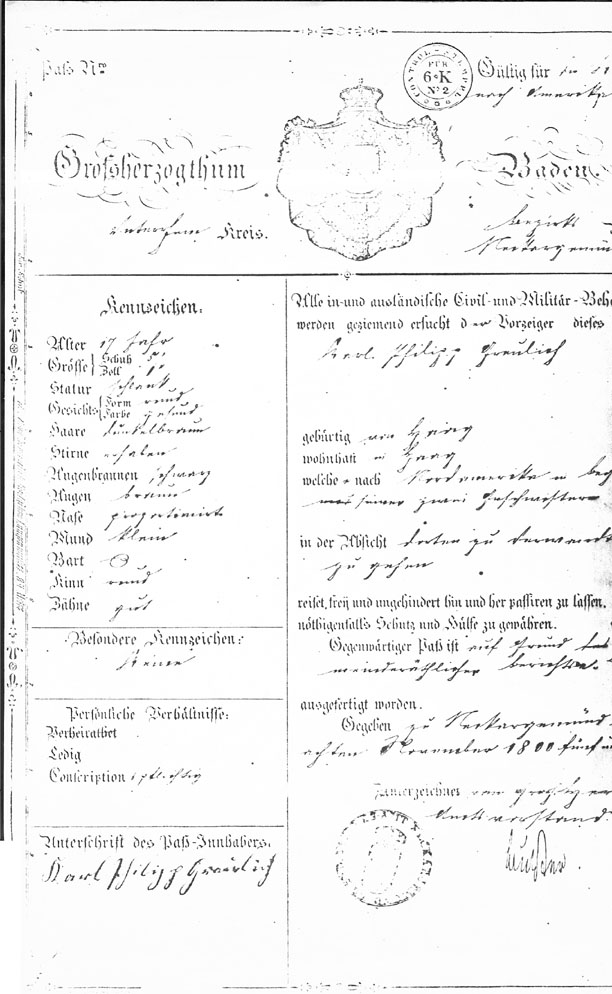 Paß Nro
CONTROL-STEMPEL
FÜR
6 K
No 2
Gültig für ein
nach Amerika
Großherzogthum
Baden.
Unterrhein Kreis.
Bezirk
Neckargemünd
Kennzeichen.
Alter 17 Jahr
Größe Schuh 5'
Zoll 1"
Statur schlank
Gesichts Form rund
Farbe gesund
Haare dunkelbraun
Stirne erhaben
Augenbraunen schwarz
Augen braun
Nase proportionirt
Mund klein
Bart
Kinn rund
Zähne gut
Besondere Kennzeichen:
Keine
Persönliche Verhältnisse:
Verheirathet
Ledig
Conscriptions pflichtig
Unterschrift des Paß-Innhabers.
Karl Philipp Greulich
Alle in- und ausländische Civil- und Militär-Behö
werden geziemend ersucht der Vorzeiger dieses
Karl Philipp Greulich
gebürtig von Haag
wohnhaft in Haag
welcher nach Nordamerika in
seiner zwei Geschwistern
in der Absicht dorten zu Verwandt
zu gehen
reiset, frey und ungehindert hin und her passiren zu lassen,
nöthigenfalls Schutz und Hülfe zu gewähren.
Gegenwärtiger Paß ist auf Grund des
meinderäthlichen Berichts
ausgefertigt worden.
Gegeben zu Neckargemünd
achten November 1800 fünf
Unterzeichnet von
Amtsvorstand